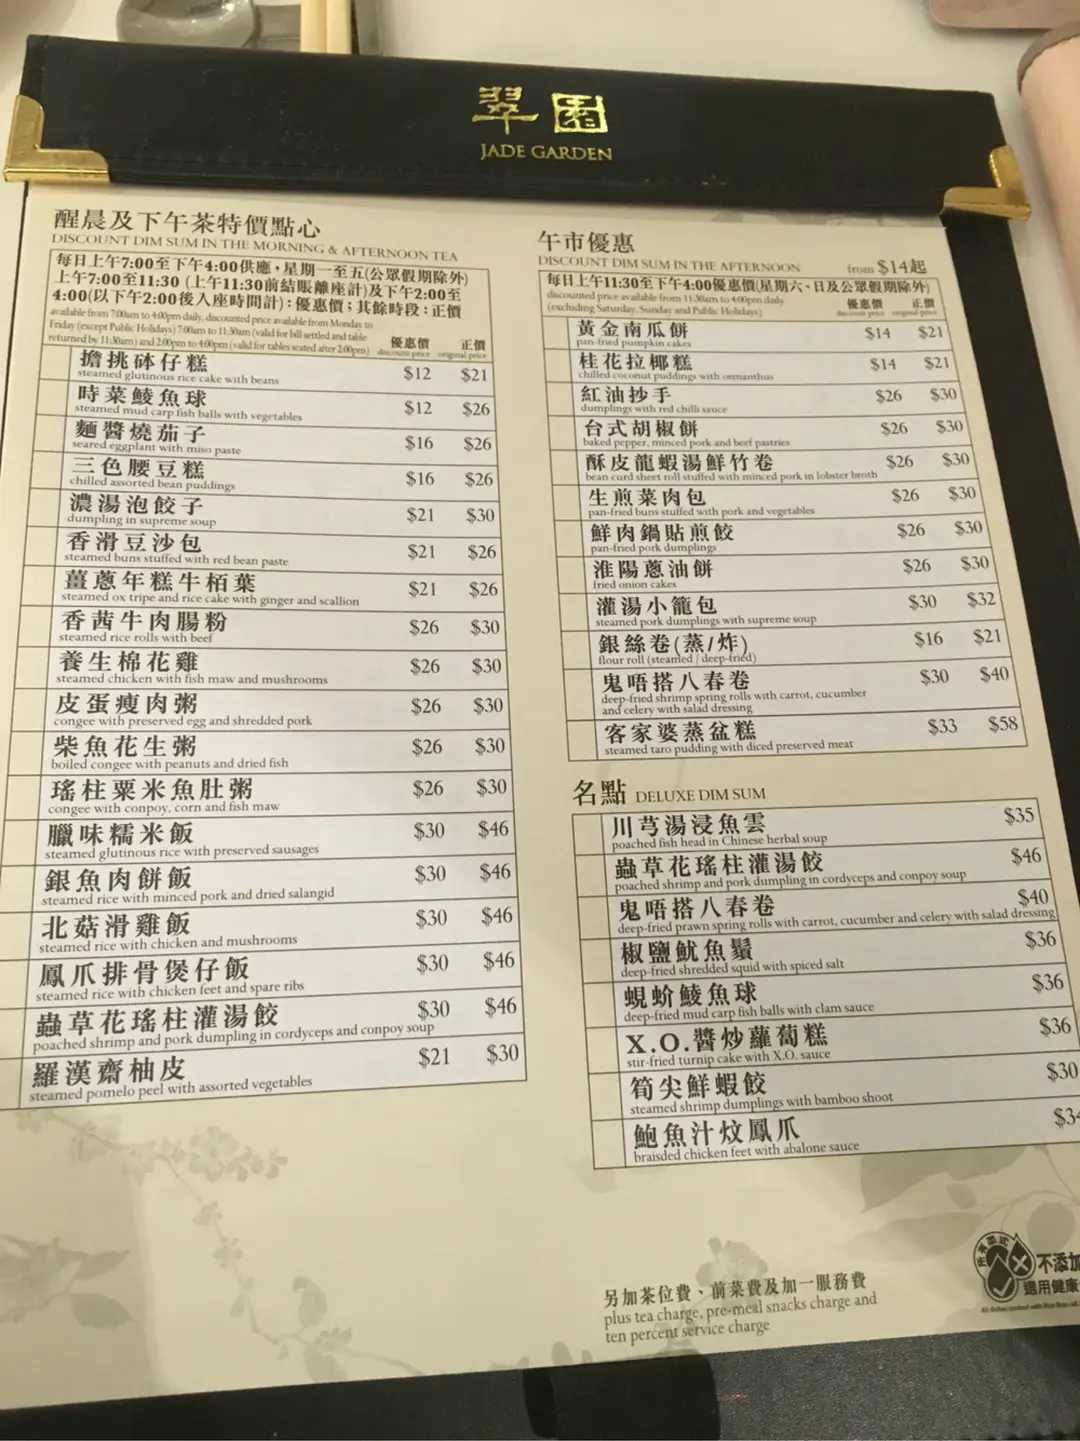 翠園
JADE GARDEN
醒晨及下午茶特價點心
DISCOUNT DIM SUM IN THE MORNING & AFTERNOON TEA
每日上午7:00至下午4:00供應，星期一至五(公眾假期除外)
上午7:00至11:30 (上午11:30前結賬離座計)及下午2:00至
4:00(以下午2:00後入座時間計)：優惠價；其餘時段：正價
available from 7:00am to 4:00pm daily, discounted price available from Monday to
Friday (except Public Holidays) 7:00am to 11:30am (valid for bill settled and table
returned by 11:30am) and 2:00pm to 4:00pm (valid for tables seated after 2:00pm)
優惠價 正價
discount price original price
擔挑砵仔糕 $12 $21
steamed glutinous rice cake with beans
時菜鯪魚球 $12 $26
steamed mud carp fish balls with vegetables
麵醬燒茄子 $16 $26
seared eggplant with miso paste
三色腰豆糕 $16 $26
chilled assorted bean puddings
濃湯泡餃子 $21 $30
dumpling in supreme soup
香滑豆沙包 $21 $26
steamed buns stuffed with red bean paste
薑蔥年糕牛栢葉 $21 $26
steamed ox tripe and rice cake with ginger and scallion
香茜牛肉腸粉 $26 $30
steamed rice rolls with beef
養生棉花雞 $26 $30
steamed chicken with fish maw and mushrooms
皮蛋瘦肉粥 $26 $30
congee with preserved egg and shredded pork
柴魚花生粥 $26 $30
boiled congee with peanuts and dried fish
瑤柱粟米魚肚粥 $26 $30
congee with conpoy, corn and fish maw
臘味糯米飯 $30 $46
steamed glutinous rice with preserved sausages
銀魚肉餅飯 $30 $46
steamed rice with minced pork and dried salangid
北菇滑雞飯 $30 $46
steamed rice with chicken and mushrooms
鳳爪排骨煲仔飯 $30 $46
steamed rice with chicken feet and spare ribs
蟲草花瑤柱灌湯餃 $30 $46
poached shrimp and pork dumpling in cordyceps and conpoy soup
羅漢齋柚皮 $21 $30
steamed pomelo peel with assorted vegetables
午市優惠
DISCOUNT DIM SUM IN THE AFTERNOON from $14起
每日上午11:30至下午4:00優惠價(星期六、日及公眾假期除外)
discounted price available from 11:30am to 4:00pm daily
(excluding Saturday, Sunday and Public Holidays)
優惠價 正價
discount price original price
黃金南瓜餅 $14 $21
pan-fried pumpkin cakes
桂花拉椰糕 $14 $21
chilled coconut puddings with osmanthus
紅油抄手 $26 $30
dumplings with red chilli sauce
台式胡椒餅 $26 $30
baked pepper, minced pork and beef pastries
酥皮龍蝦湯鮮竹卷 $26 $30
bean curd sheet roll stuffed with minced pork in lobster broth
生煎菜肉包 $26 $30
pan-fried buns stuffed with pork and vegetables
鮮肉鍋貼煎餃 $26 $30
pan-fried pork dumplings
淮陽蔥油餅 $26 $30
fried onion cakes
灌湯小籠包 $30 $32
steamed pork dumplings with supreme soup
銀絲卷(蒸/炸) $16 $21
flour roll (steamed / deep-fried)
鬼唔搭八春卷 $30 $40
deep-fried shrimp spring rolls with carrot, cucumber
and celery with salad dressing
客家婆蒸盆糕 $33 $58
steamed taro pudding with diced preserved meat
名點 DELUXE DIM SUM
川芎湯浸魚雲 $35
poached fish head in Chinese herbal soup
蟲草花瑤柱灌湯餃 $46
poached shrimp and pork dumpling in cordyceps and conpoy soup
鬼唔搭八春卷 $40
deep-fried prawn spring rolls with carrot, cucumber and celery with salad dressing
椒鹽魷魚鬚 $36
deep-fried shredded squid with spiced salt
蜆蚧鯪魚球 $36
deep-fried mud carp fish balls with clam sauce
X.O.醬炒蘿蔔糕 $36
stir-fried turnip cake with X.O. sauce
筍尖鮮蝦餃 $30
steamed shrimp dumplings with bamboo shoot
鮑魚汁炆鳳爪
braisded chicken feet with abalone sauce
另加茶位費、前菜費及加一服務費
plus tea charge, pre-meal snacks charge and
ten percent service charge
不添加
選用健康